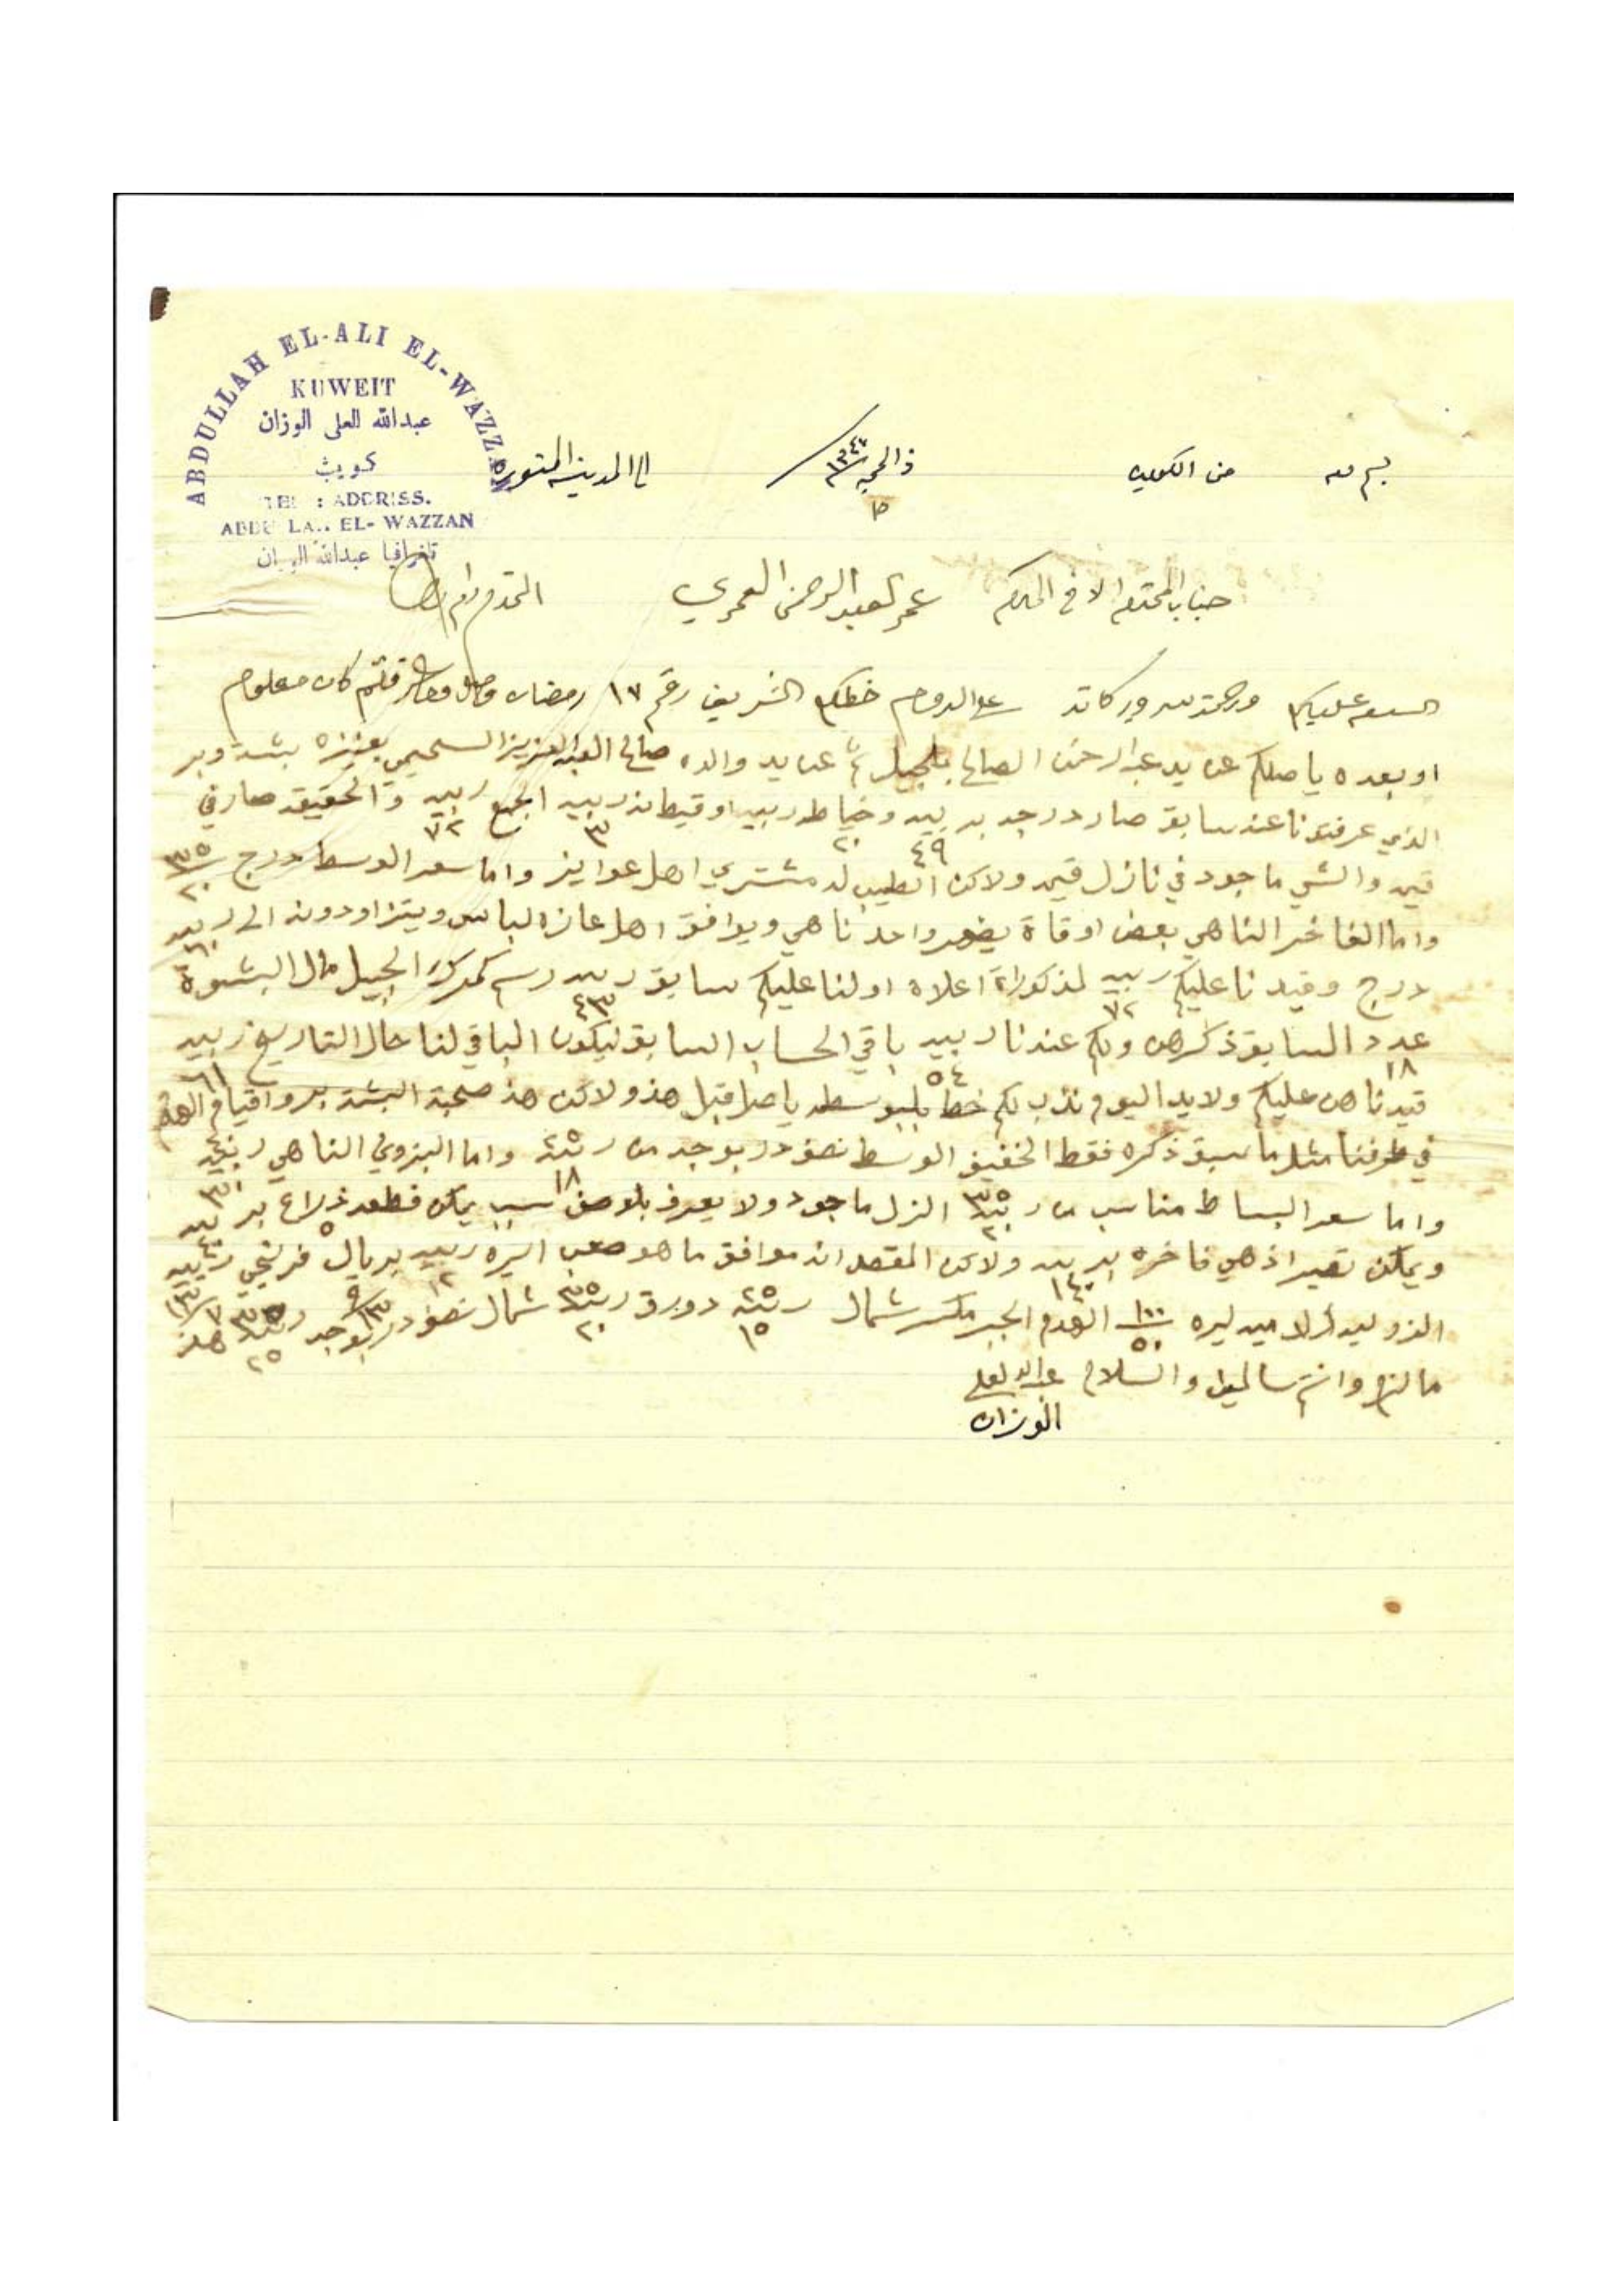 ABDULLAH EL-ALI EL-WAZZAN
KUWEIT
عبدالله العلي الوزان
كويت
TEL : ADDRISS.
ABDULLAH EL-WAZZAN
تلغرافيا عبدالله الوزان
من الكويت ذالحجه ١٣٤٧ الى المدينة المنوره
١٥
جناب المحترم الاخ المكرم عمر العبدالرحمن العمري المحترم دام
السلام عليكم ورحمة الله وبركاته على الدوام خطكم الشريف رقم ١٧ رمضان وصل كان معلوم
او بعده ياصلكم عن يد عبدالرحمن الصالح بالجبيل ثم عن يد والده صالح العبدالعزيز السحيمي بعنيزه بشت وبر
الذي عرفتونا عنه سابق صار درجه بربيه ٤٩ وخياطه ربيه ٢٠ اوقيطانه ربيه ٣ الجميع ربيه ٧٢ والحقيقه صار في
قيمه والشي ماجود في نازل قيمه ولاكن الطيب له مشتري اهل عوايز واما سعر الوسط درج ٣٥ ٢٠
واما الفاخر الناهي بعض اوقاة يضهر واحد ناهي ويوافق اهل عازه لباس ويتزاودونه الى ربيه ٦٠
درج وقيدنا عليكم ربيه ٧٢ لمذكورات اعلاه اولنا عليكم سابق ربيه ٤٣ رسم كمرك الجبيل مال البشوة
عدد ١٨ السابق ذكرهن ولكم عندنا ربيه ٥٤ باقي الحساب السابق ليكون الباقي لنا حال التاريخ ربيه ٦١
قيدناهن عليكم ولابد اليوم خط ياصل قبل هذو ولاكن هذ صحبة البشت واقيام الهدم
في طرفنا مثل ما سبق ذكره فقط الخفيف الوسط نصف در بوجه من ربيه ٢٥ ١٨ واما البزوني الناهي ربيه ٤٠ ٣٠
واما سعر البساط مناسب من ربيه ٣٥ ٢٠ النزل ماجود ولا يعرف بلوصف يمكن قطعه ٥ ذراع بربيه ٤٠
ويمكن تصير اذ هي فاخره بربيه ١٤٠ ولاكن المقصد انه موافق ما هو صعب ليره ربيه ١٢ بريال فرنجي ربيه
ليره ١٠٠ ٥٠ الهدم شمال ربيه ٢٥ ١٥ دورق ربيه ٣٥ ٢٠ شمال نصف در بوجه ربيه ٣٥ ٢٥ هذ
مالزم وانتم سالمين والسلام عبدالله العلي
الوزان